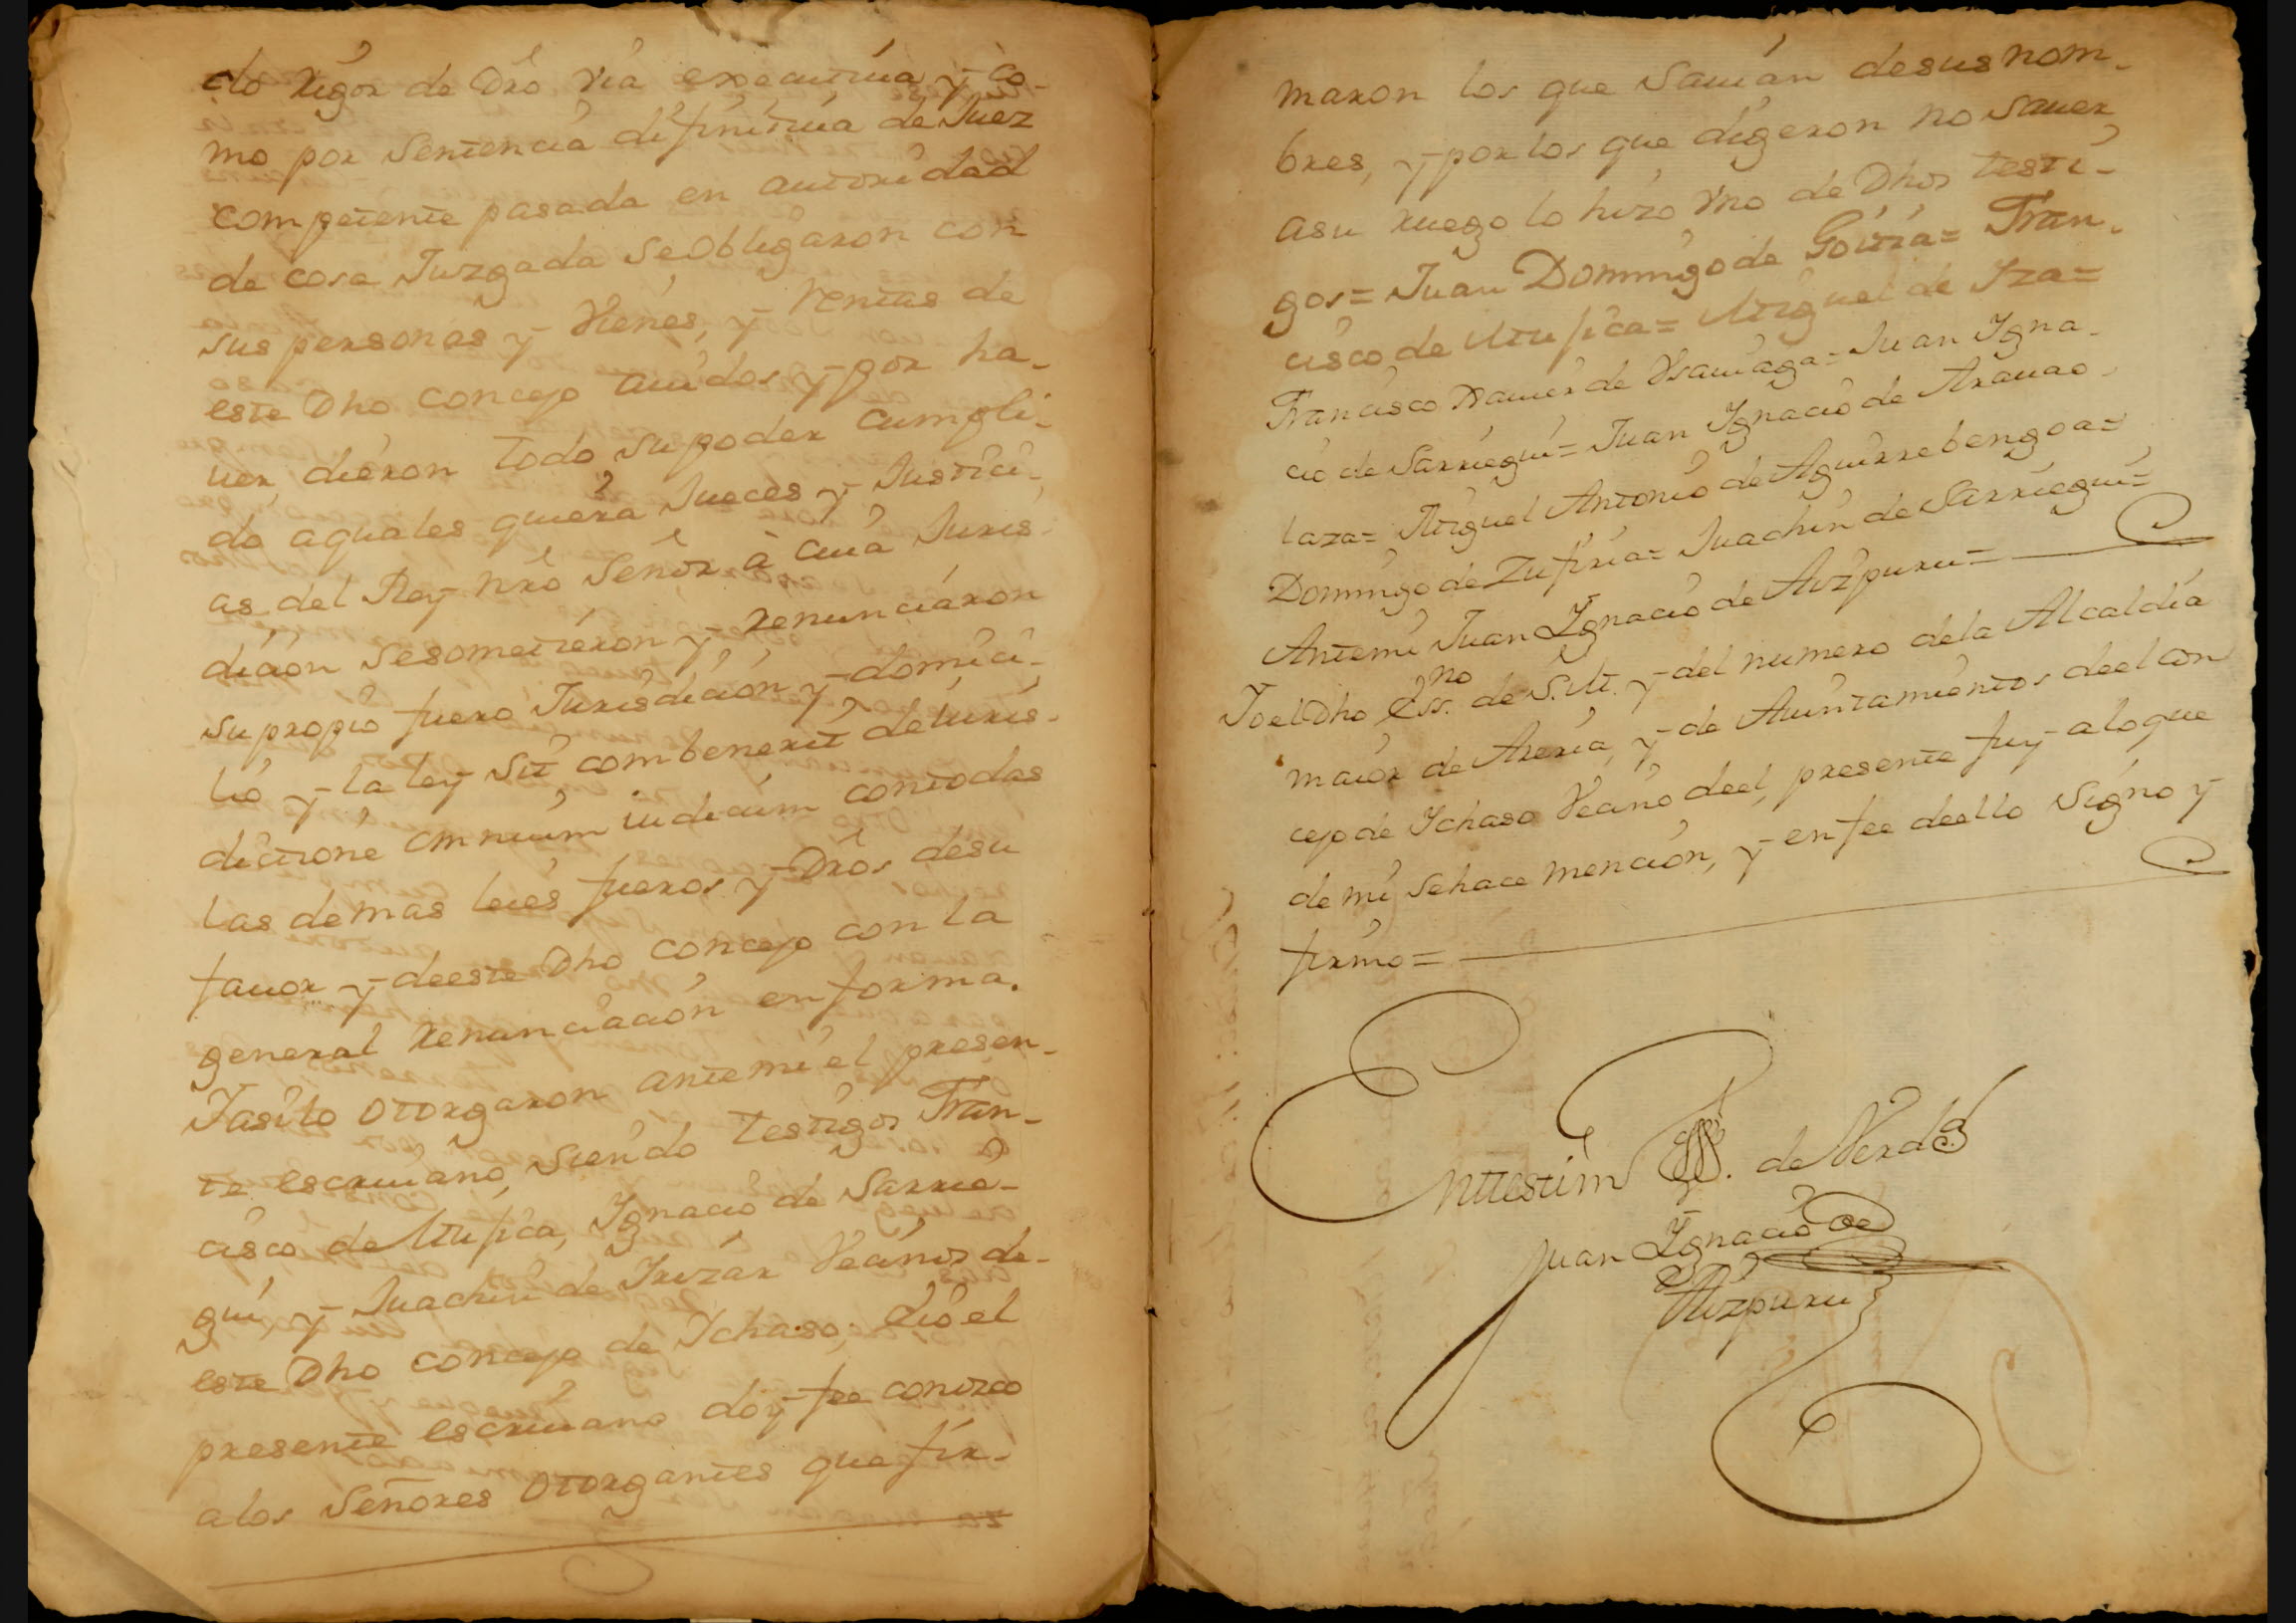 do rigor de Dro via executiua y co-
mo por Sentencia difinitiua de Juez
competente pasada en autoridad
de cosa Juzgada Se Obligaron con
sus personas y Vienes, y Rentas de
este Dho Concejo auidos y por ha-
uer, dieron todo su poder Cumpli-
do aquales quiera Jueces y Justici-
as del Rey nro Señor à cuia Juris-
dicion sesometieron y renunciaron
su propio fuero Jurisdicion y domici-
lio y la ley Sit combenerit de iuris-
dictione omnium iudicum contodas
las demas leies fueros y Dros desu
fauor y deeste Dho Concejo con la
general Renunciacion en forma.
Iasilo otorgaron antemi el presen-
te escriuano, Siendo testigos Fran-
cisco de Mufica, Ignacio de Sarrie-
gui, y Juachin de Irizar Vecinos de-
este Dho Concejo de Ichaso, Dio el
presente escriuano doy fee conozco
alos Señores Otorgantes que fir-
maron los que Sauian desus nom-
bres, y por los que digeron no Sauer
asu ruego lo hizo Vno de Dhos testi-
gos= Juan Domingo de Goitia= Fran-
cisco de Mufica= Miguel de Iza=
Francisco Xauier de Vsauiaga= Juan Igna-
cio de Sarriegui= Juan Ignacio de Arauao-
laza= Miguel Antonio de Aguirrebengoa=
Domingo de Zufiria= Juachin de Sarriegui=
Antemi Juan Ignacio de Aizpuru=
Io el Dho Ess.no de S.M. y del numero dela Alcaldia
maior de Areria, y de Aiuntamientos deel con
cejo de Ichaso Vecino deel, presente fuy aloque
de mi sehace mencion, y enfee deello Signo y
firmo=
Enttestim . de Verdad
Juan Ignacio de
Aizpuru